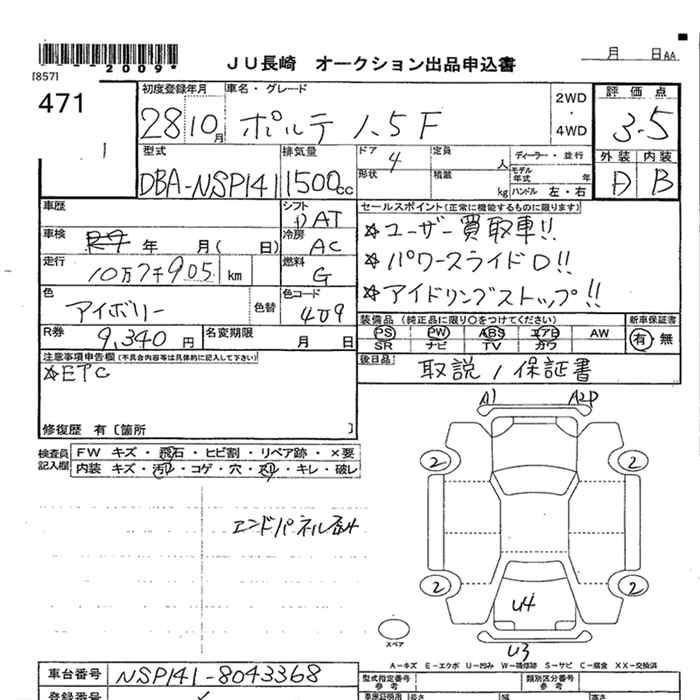 2009*
[857]
JU長崎 オークション出品申込書
月 日AA
471
初度登録年月 車名・グレード
2WD ・ 4WD
評価点
28 10月 ポルテ 1.5F
3.5
型式 排気量 ドア 4 定員 人 ディーラー・並行
外装 内装
形状 積載 kg モデル年式 年 ハンドル 左・右
DBA-NSP141 1500cc
D B
車歴 シフト AT
セールスポイント(正常に機能するものに限ります)
☆ユーザー買取車!!
車検 R7 年 月( 日) 冷房 AC
☆パワースライドD!!
走行 10万7千905 km 燃料 G
☆アイドリングストップ!!
色 アイボリー 色替 色コード 4U9
装備品(純正品に限り○をつけてください) 新車保証書
PS PW ABS エアB AW 有・無
SR ナビ TV カワ
R券 9,340円 名変期限 月 日
後日品 取説/保証書
注意事項申告欄(不具合内容等は具体的に記入して下さい)
☆ETC
修復歴 有〔箇所 〕
A1 A2P
検査員記入欄 FW キズ・飛石・ヒビ割・リペア跡・×要
内装 キズ・汚レ・コゲ・穴・スリ・キレ・破レ
2 2
エンドパネル歪み
2 2
U4
スペア
U3
A-キズ E-エクボ U-凹み W-補修跡 S-サビ C-腐食 XX-交換済
車台番号 NSP141-8043368
型式指定番号 参考 類別区分番号 参考
登録番号
車庫証明用 長さ 幅 高さ